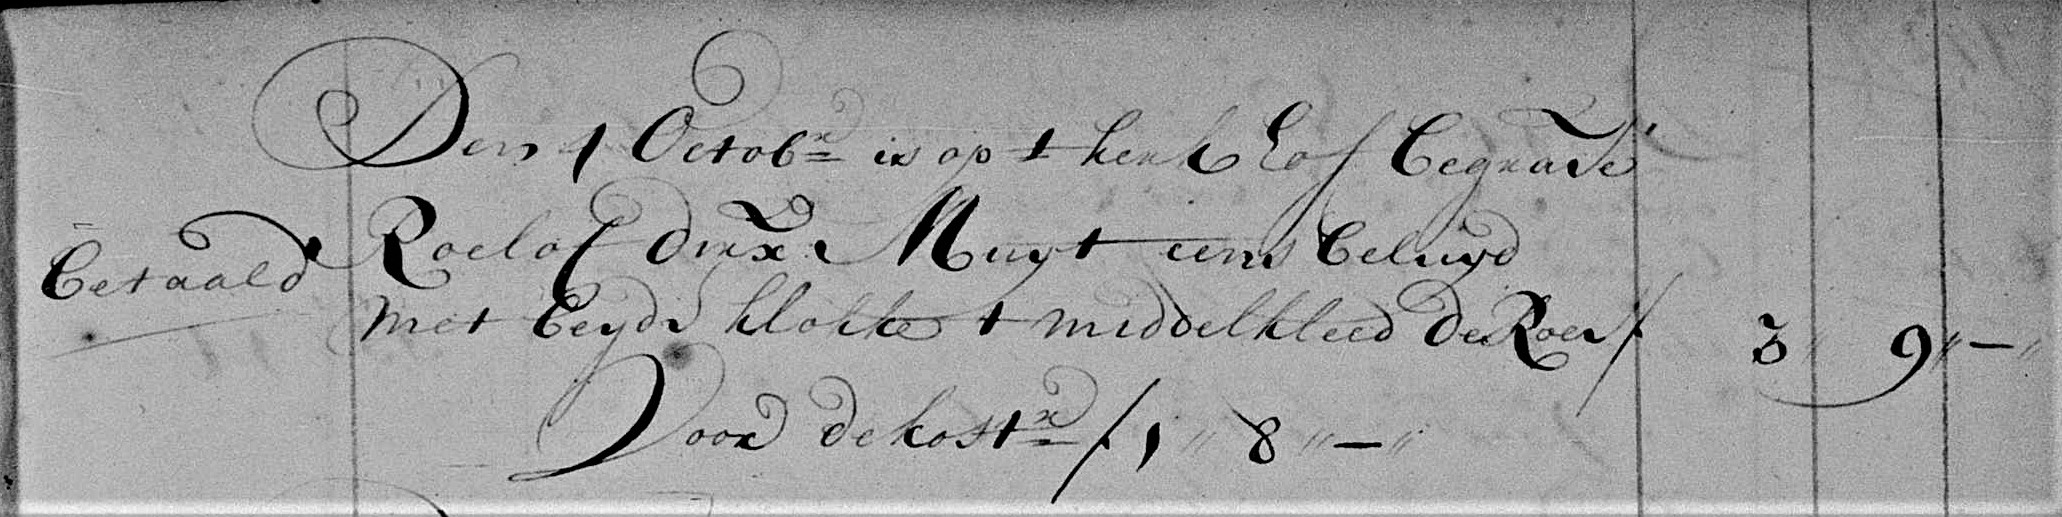 Den 1 Octobr is op t kerk Hof begrave
Roelof dirx Muyt eens beluyd
betaald
met beyde klokke t middelkleed de Roer f 3 " 9 " — "
Voor de kostr f 1 " 8 " — "